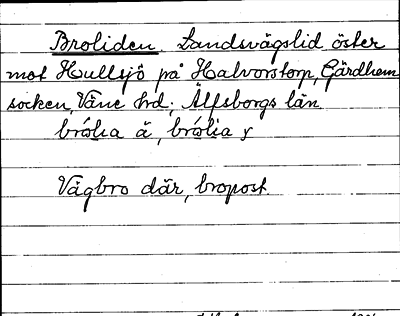 Broliden. Landsvägslid öster
mot Hullsjö på Halvorstorp, Gärdhem
socken, Väne hd; Älfsborgs län
Vägbro där, bropost